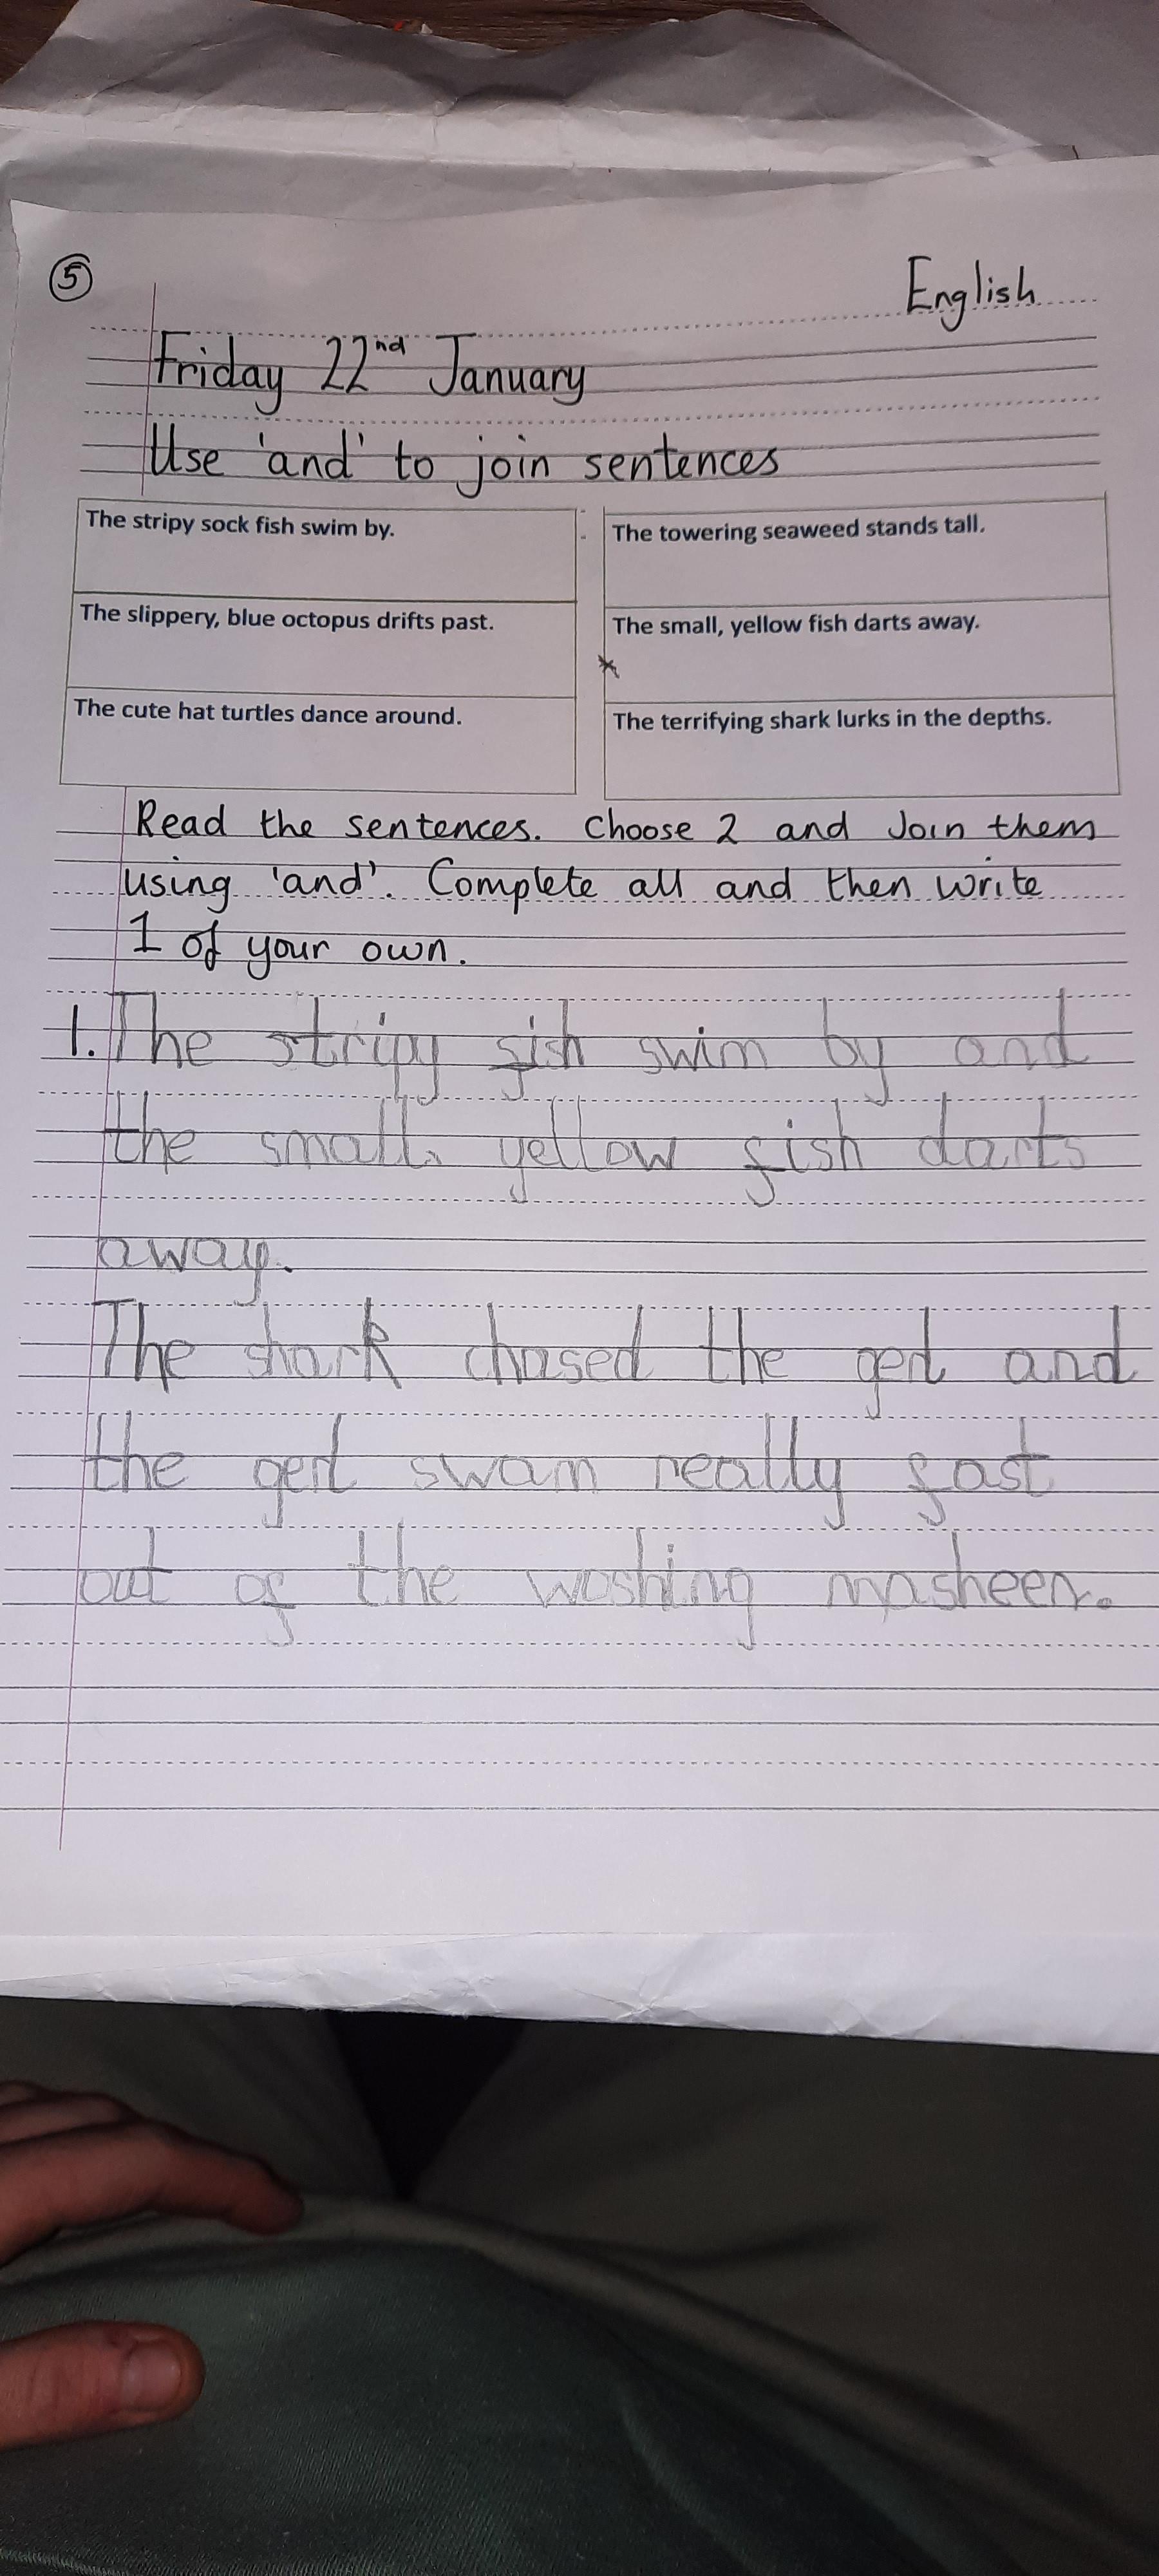 5
English
Friday 22nd January
Use 'and' to join sentences
The stripy sock fish swim by.
The towering seaweed stands tall.
The slippery, blue octopus drifts past.
The small, yellow fish darts away.
The cute hat turtles dance around.
The terrifying shark lurks in the depths.
Read the sentences. Choose 2 and Join them
using 'and'. Complete all and then write
1 of your own.
1. The stripy fish swim by and
the small, yellow fish darts
away.
The shark chased the gerl and
the gerl swam really fast
out of the woshing masheen.